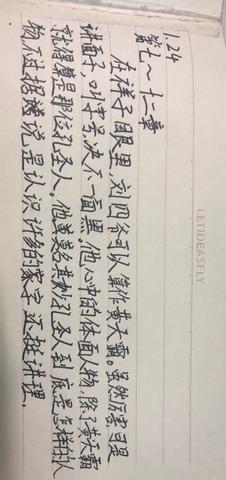 LETIDEASFLY
1.24
第七～十二章
在祥子眼里,刘四爷可以算作黄天霸。虽然厉害,可是
讲面子,叫字号,决不一面黑。他心中的体面人物,除了黄天霸
就得算是那位孔圣人。他莫名其妙孔圣人到底是怎样的人
物,不过据说是认识许多的字,还挺讲理。